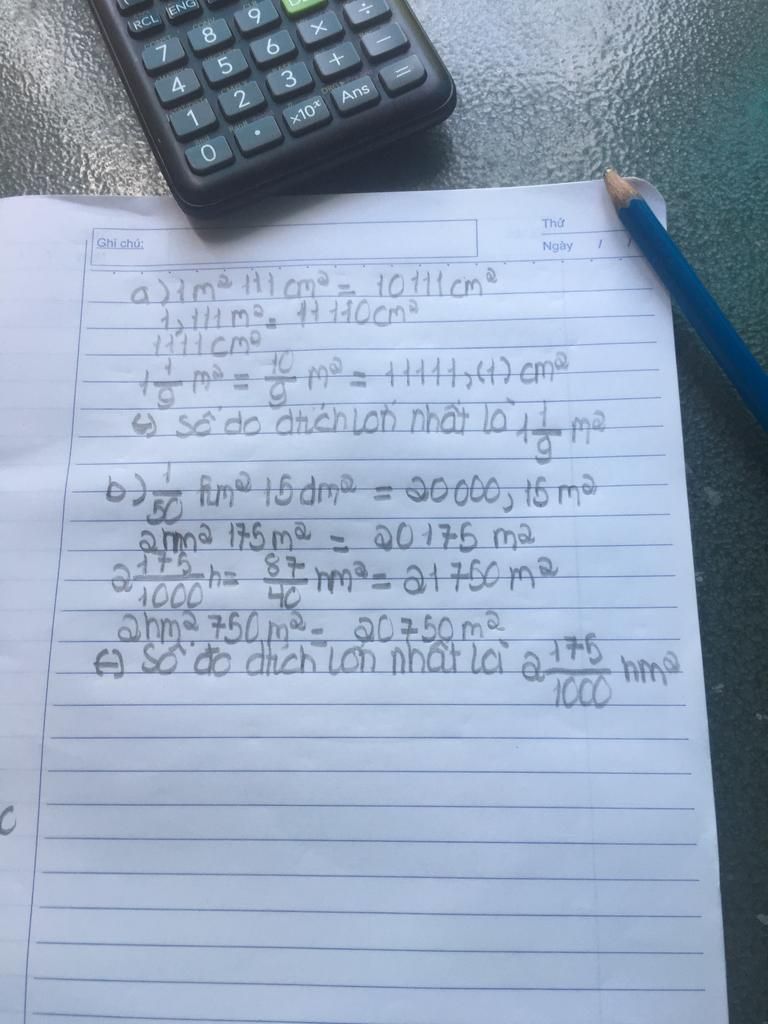 RCL ENG
7 8 9 DEL
4 5 6 × ÷
1 2 3 + −
0 . ×10ˣ Ans =
Ghi chú:
Thứ
Ngày / /
a) 1m² 111cm² = 10111cm²
1,111m² = 11110cm²
1111cm²
1 1/9 m² = 10/9 m² = 11111,(1) cm²
↪ Số đo dtích lớn nhất là 1 1/9 m²
b) 1/50 km² 15dm² = 20000,15m²
2hm² 175m² = 20175 m²
2 175/1000 h = 87/40 hm² = 21750m²
2hm² 750m² = 20750m²
↪ Số đo dtích lớn nhất là 2 175/1000 hm²
c